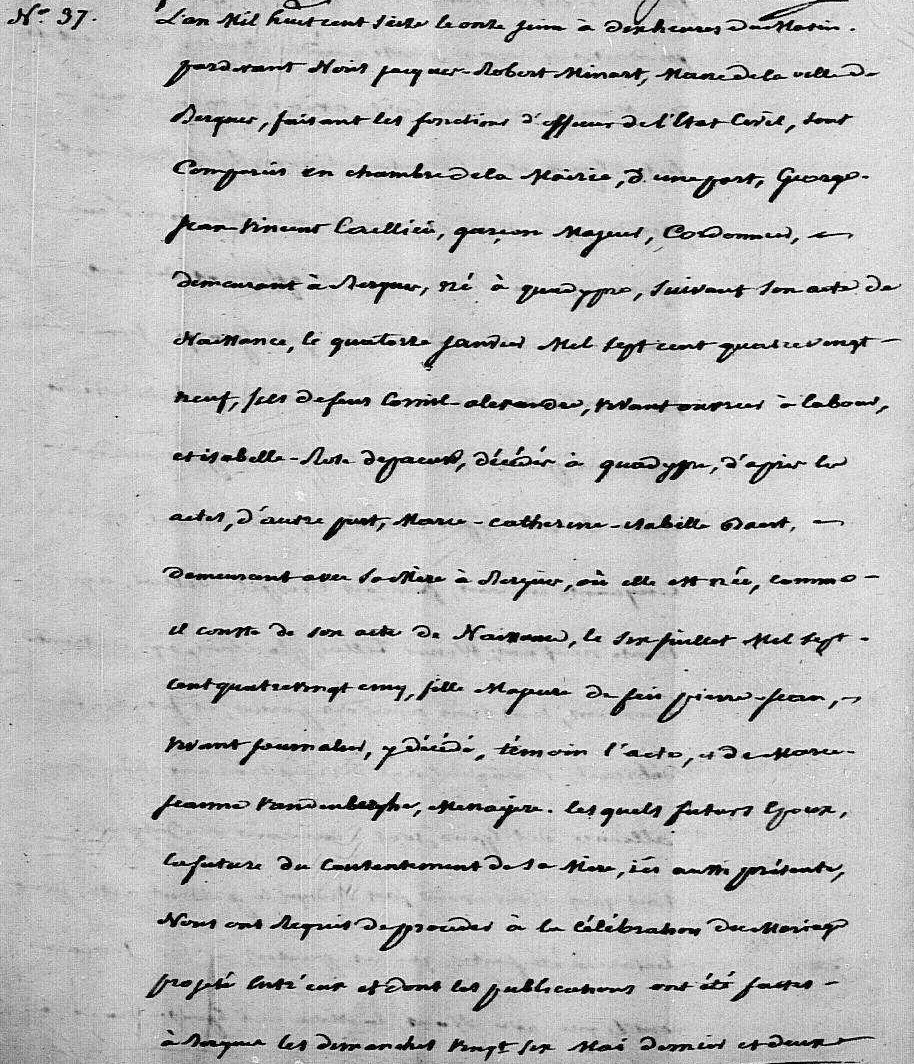 N.° 37. L'an Mil huit cent seize le onze juin à dix heures du Matin.
pardevant Nous jacques-Robert Minart, Maire de la ville de
Bergues, faisant les fonctions d'officier de l'Etat Civil, sont
Comparus en chambre de la Mairie, d'une part, George-
Jean-Vincent Caellieu, garçon Majeur, Cordonnier,
demeurant à Bergues, né à quadypre, suivant son acte de
Naissance, le quatorze janvier Mil sept cent quatre vingt
neuf, fils de feus Cornil-alexandre, vivant ouvrier à labour,
et isabelle-Rose depacuw, décédés à quadypre, d'après les
actes, d'autre part, Marie-catherine-isabelle Baert,
demeurant avec sa Mère à Bergues, où elle est née, comme
il conste de son acte de Naissance, le six juillet Mil sept
cent quatrevingt cinq, fille Majeure de feu pierre-jean,
vivant journalier, y décédé, témoin l'acte, et de Marie-
jeanne Vandenberghe, Menagère. lesquels futurs Epoux,
la future du Consentement de sa Mère, ici aussi présente,
Nous ont Requis de procéder à la célébration du Mariage
projeté Entr'eux et dont les publications ont été faites
à Bergues les dimanches vingt six Mai dernier et deux